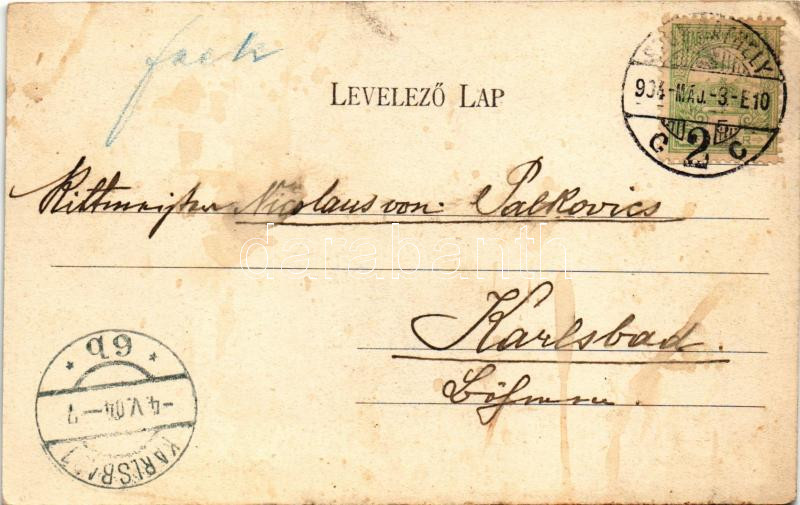 fach
LEVELEZŐ LAP
904-MÁJ.-3-E10
G 2 C
Rittmeister Nicolaus von Palkovics
darabanth
Karlsbad
Böhmen.
* 6b *
-4.V.04-7
KARLSBAD 1